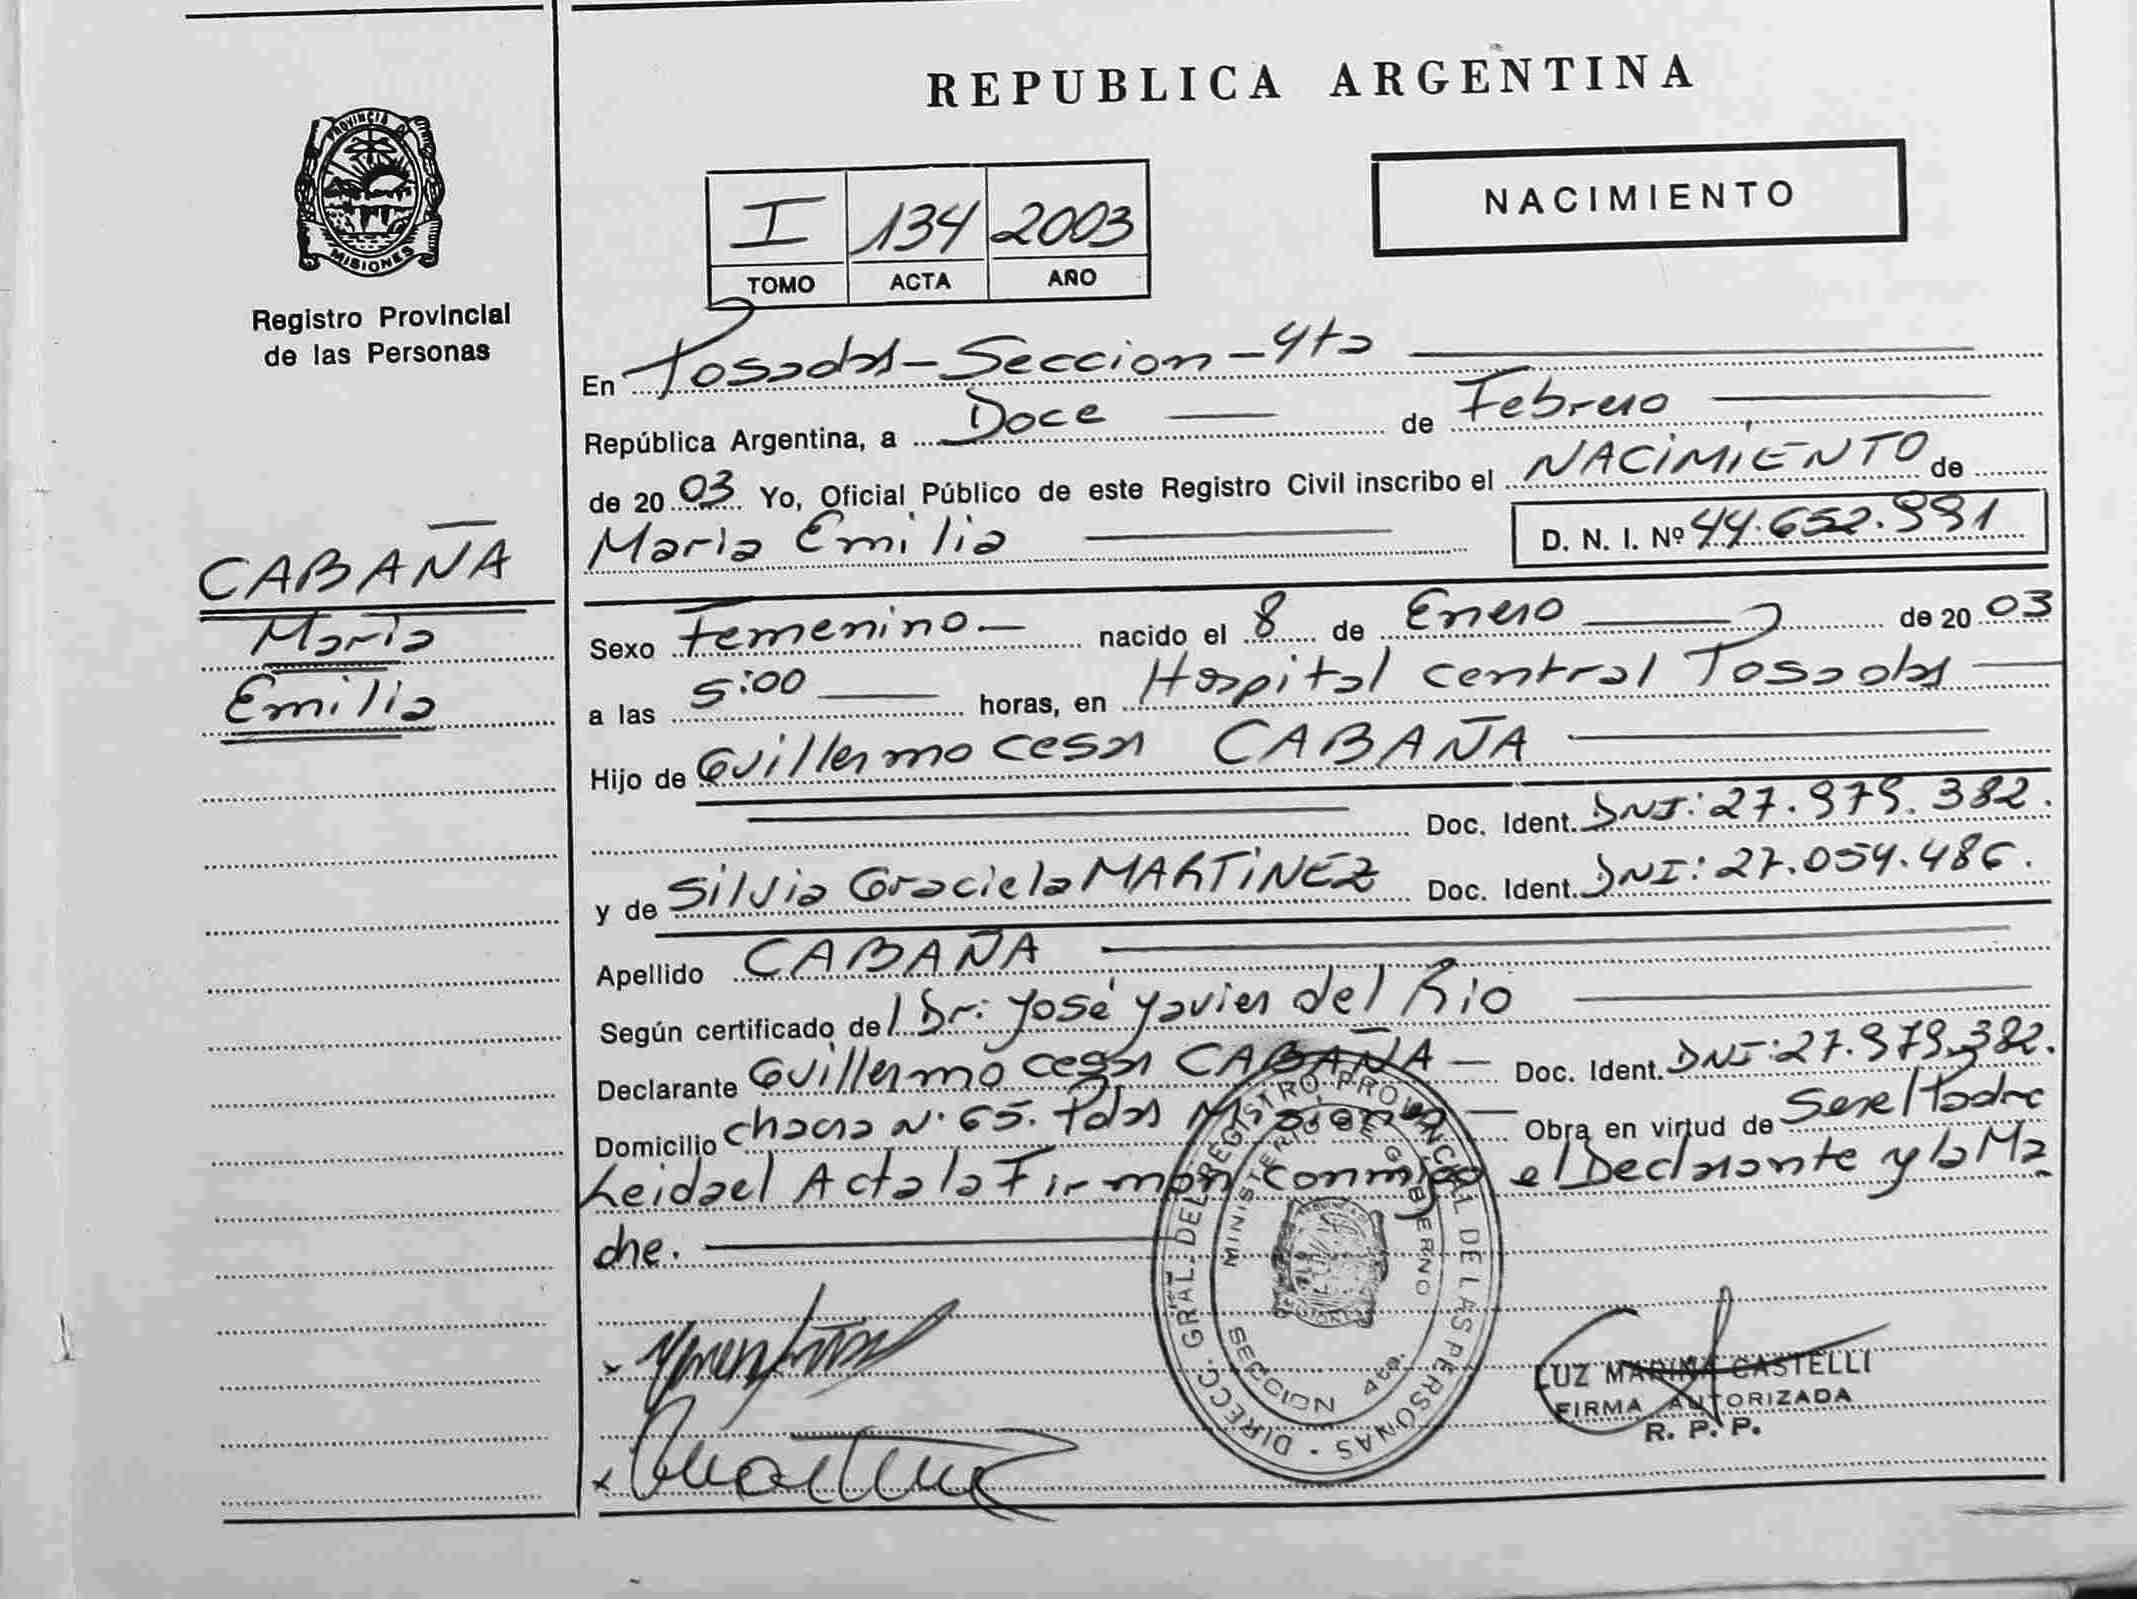 REPUBLICA ARGENTINA
PROVINCIA DE
MISIONES
Registro Provincial
de las Personas
I 134 2003
TOMO ACTA AÑO
NACIMIENTO
En Posadas - Seccion - 4ta
República Argentina, a Doce de Febrero
de 20 03 Yo, Oficial Público de este Registro Civil inscribo el NACIMIENTO de
Maria Emilia D. N. I. Nº 44.652.991
CABAÑA
Maria
Emilia
Sexo Femenino nacido el 8 de Enero de 20 03
a las 5:00 horas, en Hospital central Posadas
Hijo de Guillermo Cesar CABAÑA
Doc. Ident. DNI: 27.979.382.
y de Silvia Graciela MARTiNEZ Doc. Ident. DNI: 27.054.486.
Apellido CABAÑA
Según certificado del Dr: José Yavier del Rio
Declarante Guillermo Cesar CABAÑA Doc. Ident. DNI: 27.979.382.
Domicilio Chacra N° 65. Pdas Misiones Obra en virtud de Ser el Padre
Leida el Acta la Firman conmigo el Declarante y la Ma
dre.
DIRECC. GRAL. DEL REGISTRO PROVINCIAL DE LAS PERSONAS
MINISTERIO DE GOBIERNO
SECCION 4ta.
LUZ MARINA CASTELLI
FIRMA AUTORIZADA
R. P. P.